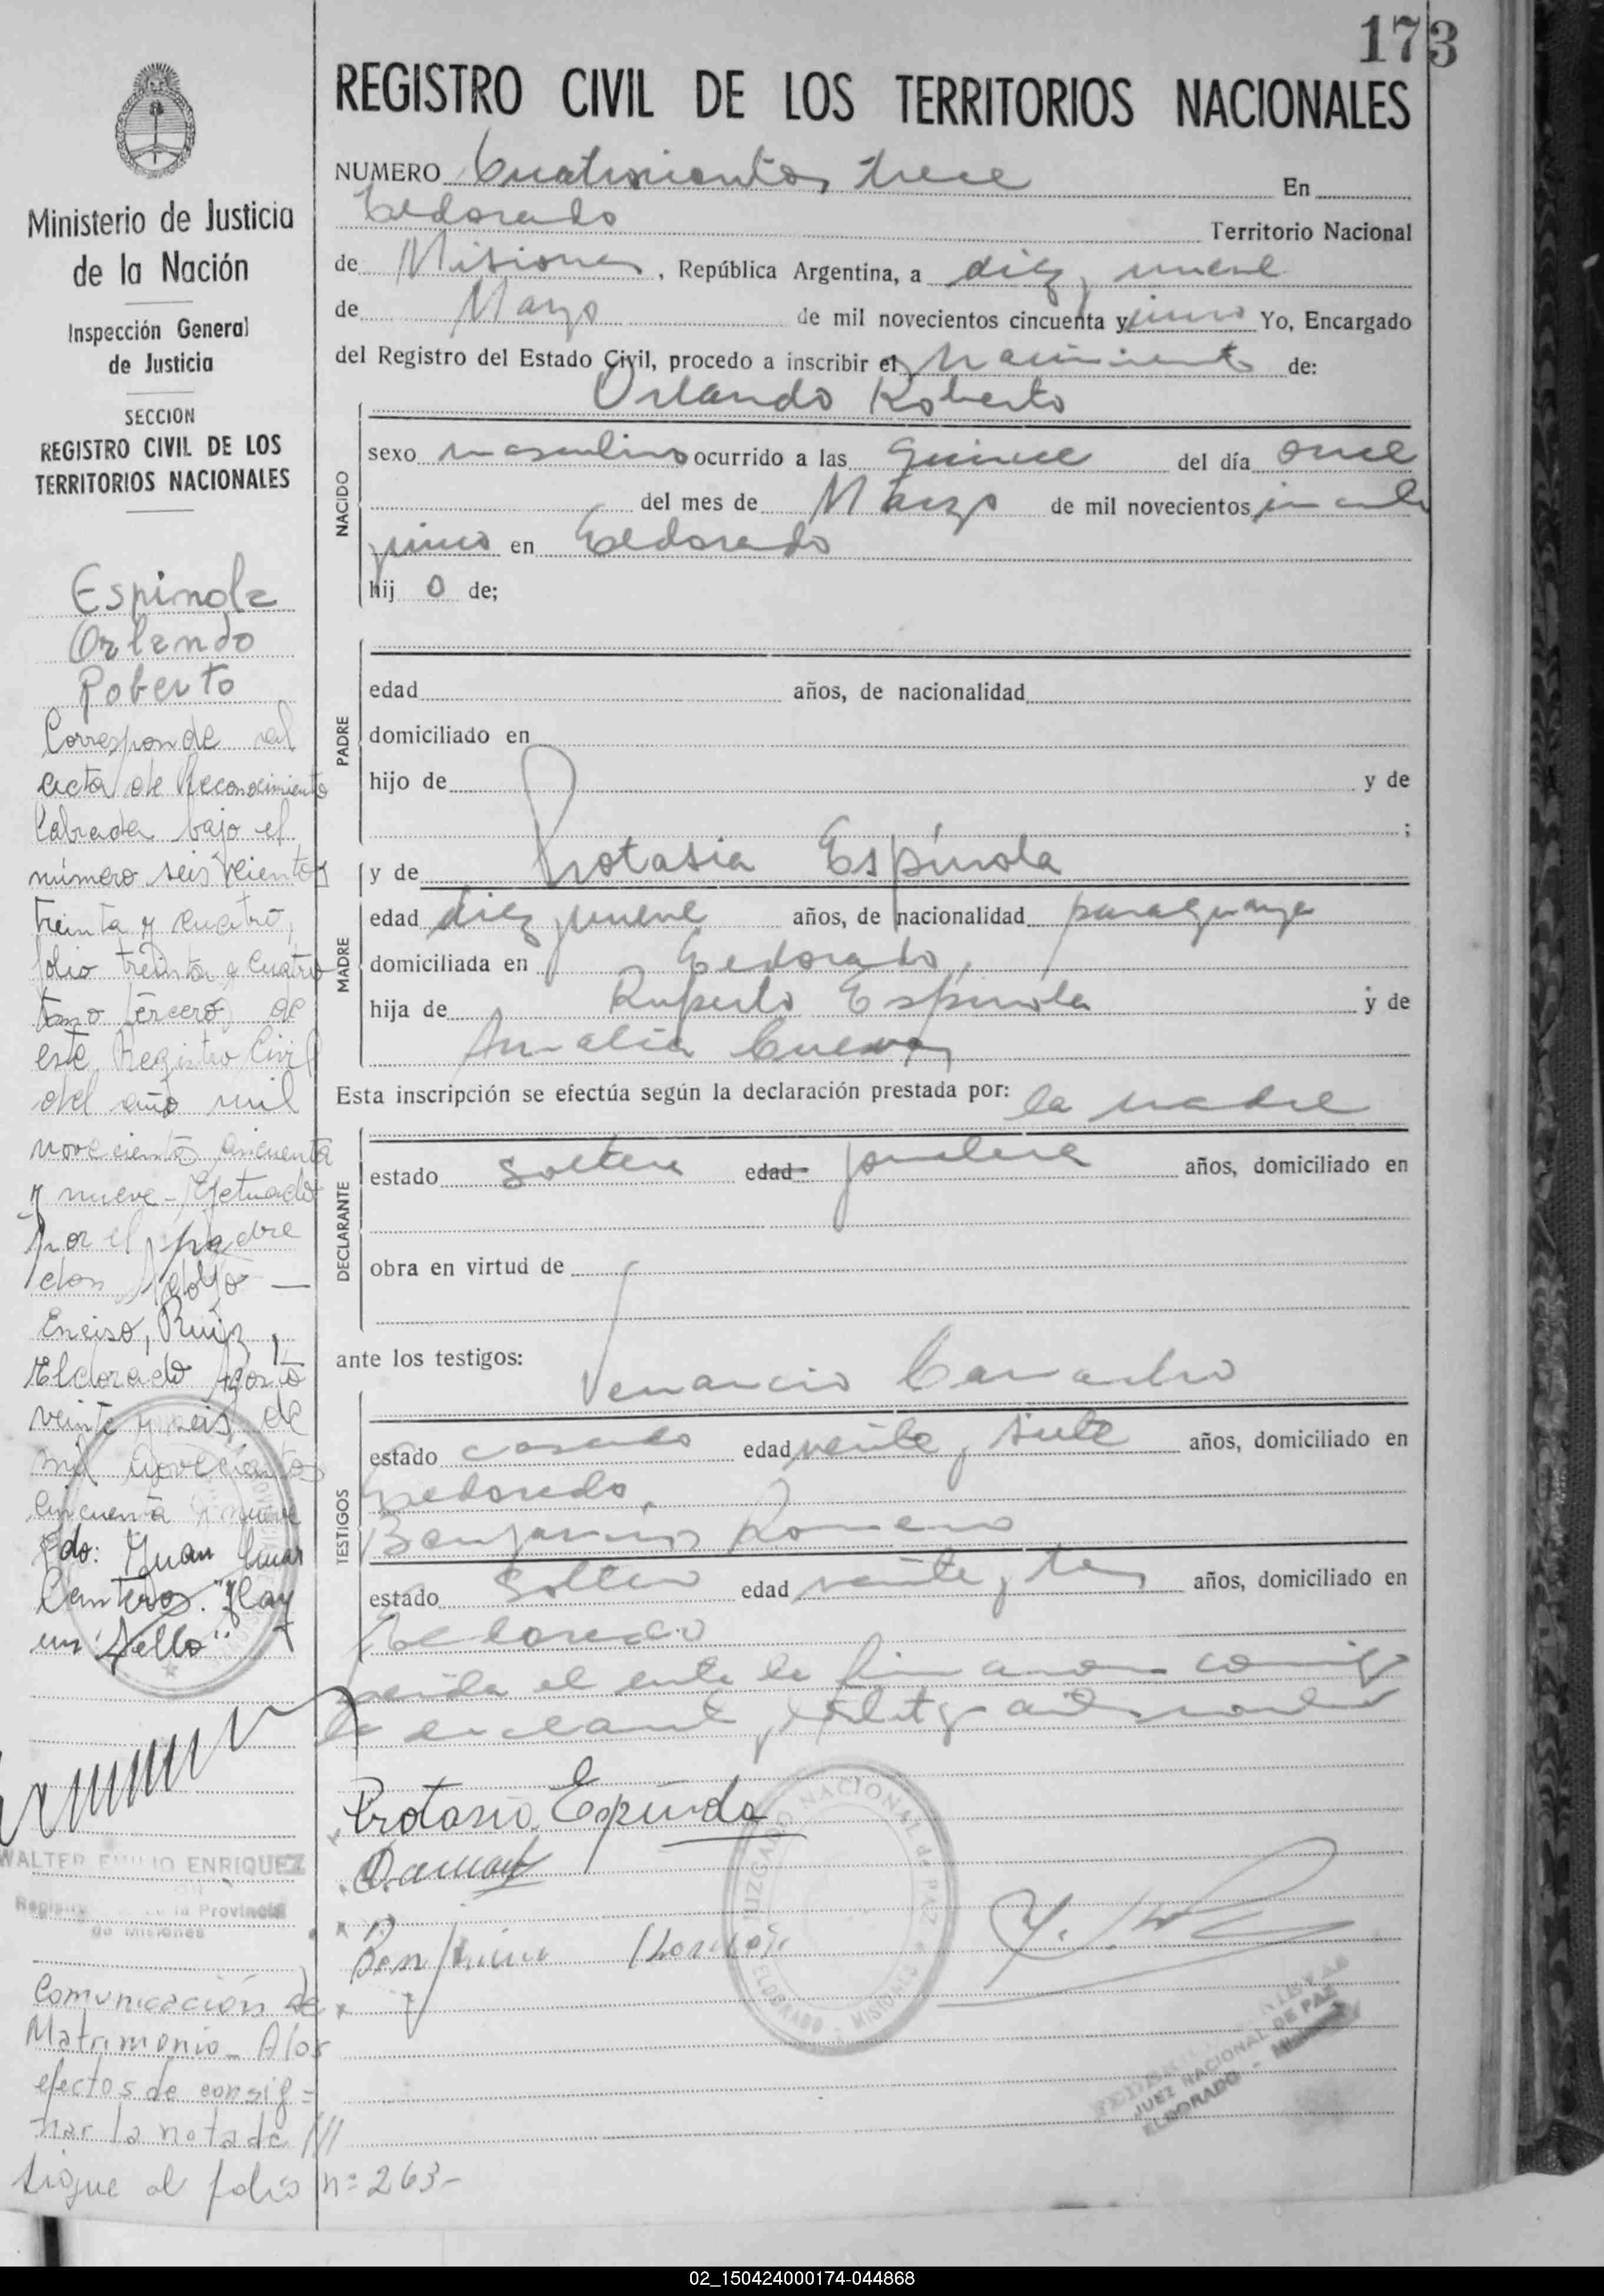 173
REGISTRO CIVIL DE LOS TERRITORIOS NACIONALES
Ministerio de Justicia
de la Nación
Inspección General
de Justicia
SECCION
REGISTRO CIVIL DE LOS
TERRITORIOS NACIONALES
Espinola
Orlando
Roberto
Corresponde al
acta de Reconocimiento
labrada bajo el
número seis cientos
treinta y cuatro,
folio treinta y cuatro
tomo tercero de
este Registro Civil
del año mil
novecientos cincuenta
y nueve - Efetuado
por el padre
don Adolfo —
Enciso, Ruiz,
Eldorado Agosto
veinte y seis de
mil novecientos
cincuenta y nueve
Fdo: Juan
Canteros. "Hay
un Sello"
WALTER EMILIO ENRIQUEZ
la Provincia
de Misiones
Comunicación de
Matrimonio - A los
efectos de consig=
nar la nota de ///
sigue al folio n= 263-
NUMERO Cuatrocientos trece En
Eldorado Territorio Nacional
de Misiones, República Argentina, a diez y nueve
de Marzo de mil novecientos cincuenta y uno Yo, Encargado
del Registro del Estado Civil, procedo a inscribir el nacimiento de:
Orlando Roberto
NACIDO
sexo masculino ocurrido a las quince del día once
del mes de Marzo de mil novecientos cincuenta
y uno en Eldorado
hij o de;
PADRE
edad años, de nacionalidad
domiciliado en
hijo de y de
;
MADRE
y de Protasia Espínola
edad diez y nueve años, de nacionalidad paraguaya
domiciliada en Eldorado,
hija de Ruperto Espinola y de
Amalia Cuevas
Esta inscripción se efectúa según la declaración prestada por: la madre
DECLARANTE
estado soltera edad años, domiciliado en
obra en virtud de
ante los testigos:
TESTIGOS
Venancio
estado casado edad veinte y siete años, domiciliado en
Eldorado.
Benjamin Romero
estado soltero edad veinte y tres años, domiciliado en
Eldorado
Leida el acta la firmaron conmigo
la declarante y testigos
Protasia Espínola
Benjamin
JUZGADO NACIONAL de PAZ
ELDORADO - MISIONES
JUEZ NACIONAL DE PAZ
ELDORADO - Misiones
02_150424000174-044868